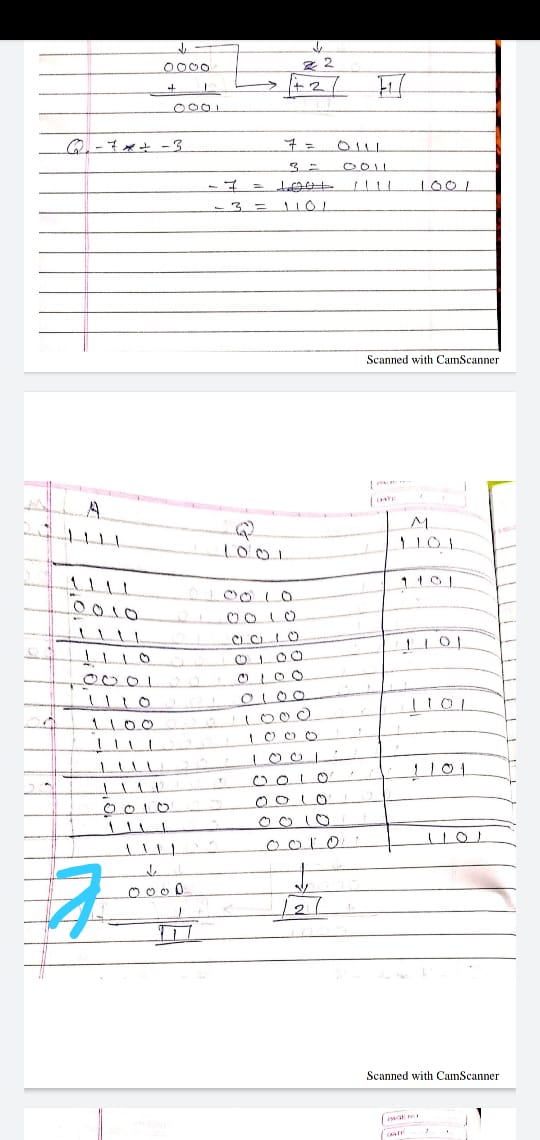 0000 2
+ 1 +2 -1
0001
Q. -7 ÷ -3 7 = 0111
3 = 0011
-7 = 1001 1111 1001
-3 = 1101
Scanned with CamScanner
A Q M
1111 1001 1101
1111 0010 1101
0010 0010
1111 0010
1110 0100 1101
0001 0100
1110 0100
1100 1000 1101
1111 1000
1111 1001
1111 0010 1101
0010 0010
1111 0010
1111 0010 1101
0000
1 2
1
Scanned with CamScanner
DATE